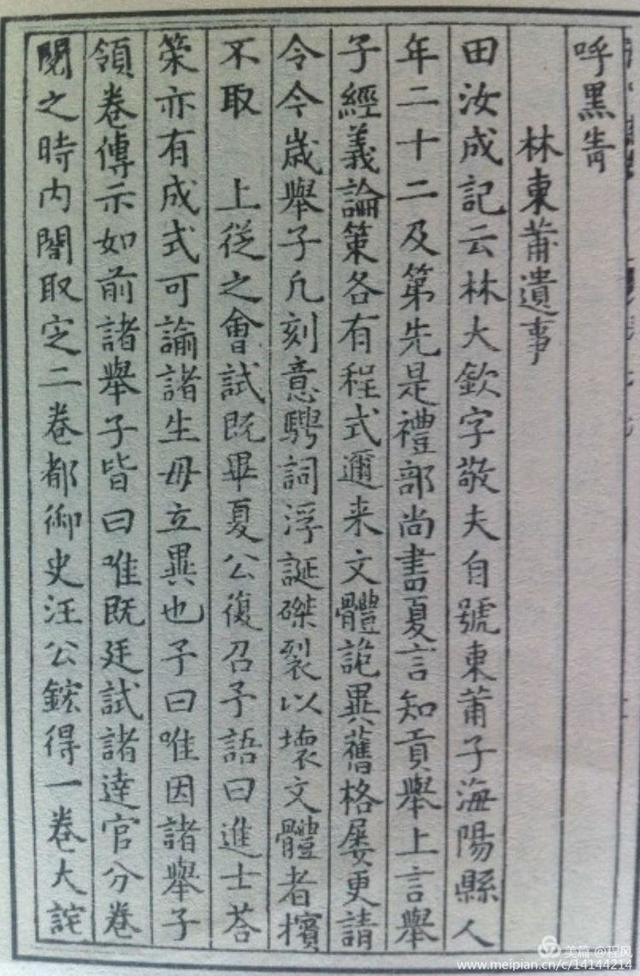 呼黑眚
林東莆遺事
田汝成記云林大欽字敬夫自號東莆子海陽縣人
年二十二及第先是禮部尚書夏言知貢舉上言舉
子經義論策各有程式邇来文體詭異舊格屡更請
令今歲舉子凡刻意騁詞浮誕磔裂以壞文體者擯
不取　上從之會試既畢夏公復召予語曰進士荅
策亦有成式可諭諸生毋立異也予曰唯因諸舉子
領卷傳示如前諸舉子皆曰唯既廷試諸達官分卷
閱之時内閣取定二卷都御史汪公鋐得一卷大詫
美篇 @程风
www.meipian.cn/c/14144214